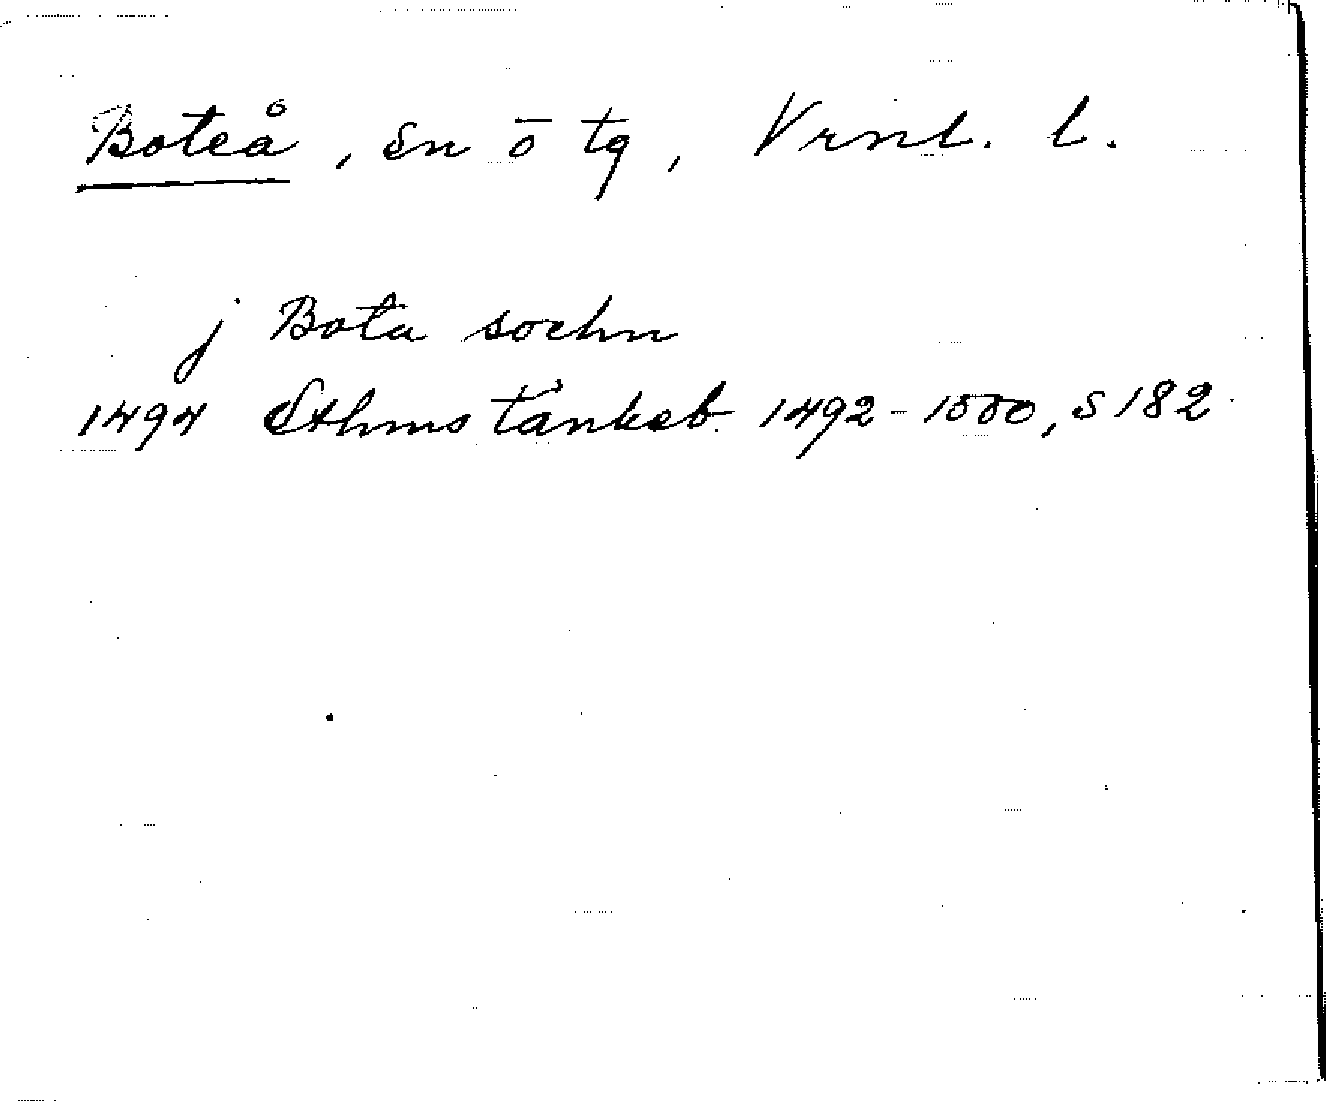 Boteå, sn o tg, Vrnl. l.
j Bota sochn
1494 Sthms tänkeb. 1492-1500, s 182